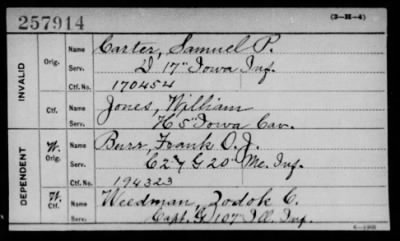 257914 (3-H-4)
INVALID
Orig. Name Carter, Samuel P.
Serv. D 17" Iowa Inf.
Ctf. No. 170454
Ctf. Name Jones, William
Serv. H 5" Iowa Cav.
DEPENDENT
W. Orig. Name Burr, Frank O. J.
Serv. C 27 G 20" Me. Inf.
Ctf. No. 194323
W. Ctf. Name Weedman, Zodok C.
Serv. Capt. G 107 Ill. Inf.